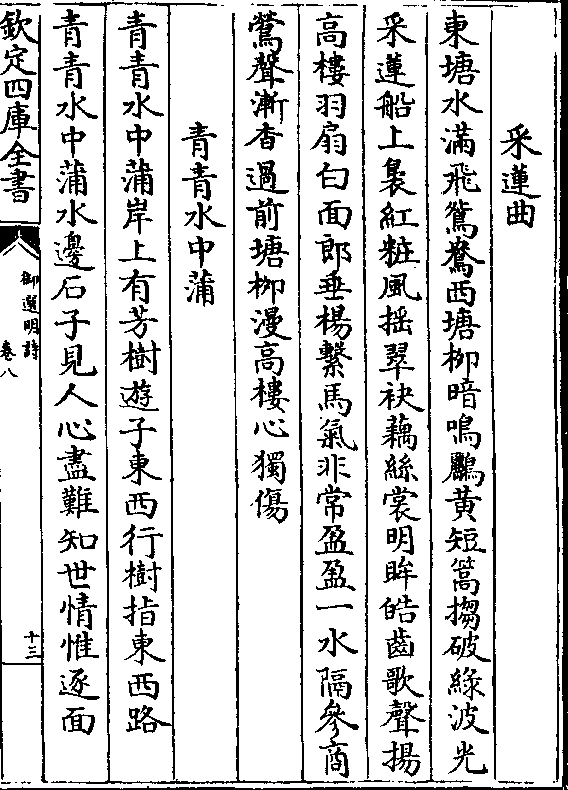 采蓮曲
東塘水滿飛鴛鴦西塘栁暗鳴鸝黄短篙搊破緑波光
采蓮船上褭紅粧風揺翠袂藕絲裳明眸皓齒歌聲揚
高樓羽扇白面郎垂楊繫馬氣非常盈盈一水隔參商
鶯聲漸杳過前塘栁漫高樓心獨傷
青青水中蒲
青青水中蒲岸上有芳樹遊子東西行樹指東西路
青青水中蒲水邊石子見人心盡難知世情惟逐面
欽定四庫全書
御選明詩
卷八
十三